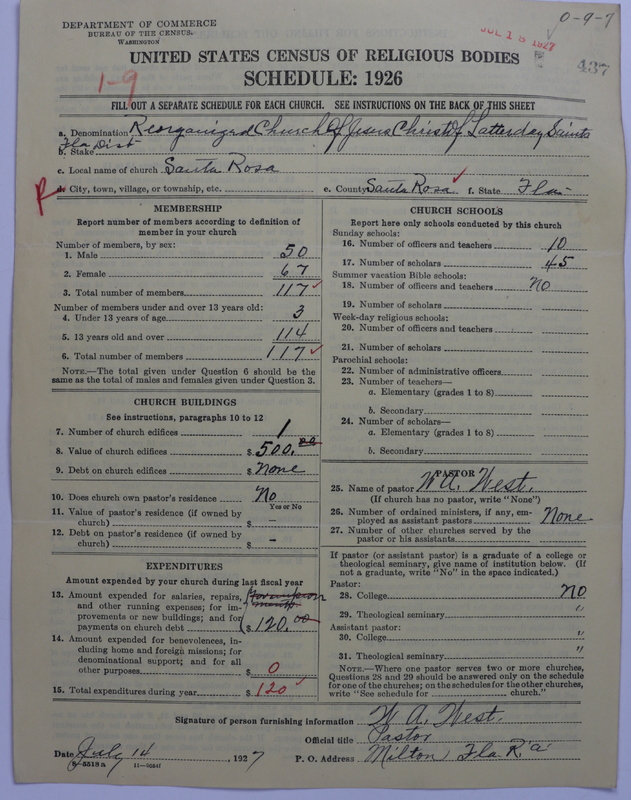 DEPARTMENT OF COMMERCE
BUREAU OF THE CENSUS
WASHINGTON
0-9-7
JUL 18 1927
437
1-9
UNITED STATES CENSUS OF RELIGIOUS BODIES
SCHEDULE: 1926
FILL OUT A SEPARATE SCHEDULE FOR EACH CHURCH. SEE INSTRUCTIONS ON THE BACK OF THIS SHEET
a. Denomination Reorganized Church Of Jesus Christ Of Latterday Saints
b. Stake Fla Dist
c. Local name of church Santa Rosa
R
d. City, town, village, or township, etc. e. County Santa Rosa f. State Fla
MEMBERSHIP
Report number of members according to definition of
member in your church
Number of members, by sex:
1. Male 50
2. Female 67
3. Total number of members 117
Number of members under and over 13 years old:
4. Under 13 years of age 3
5. 13 years old and over 114
6. Total number of members 117
NOTE.—The total given under Question 6 should be the
same as the total of males and females given under Question 3.
CHURCH BUILDINGS
See instructions, paragraphs 10 to 12
7. Number of church edifices 1
8. Value of church edifices $ 500.00
9. Debt on church edifices $ None
10. Does church own pastor's residence No
Yes or No
11. Value of pastor's residence (if owned by
church) $ –
12. Debt on pastor's residence (if owned by
church) $ –
EXPENDITURES
Amount expended by your church during last fiscal year
13. Amount expended for salaries, repairs,
and other running expenses; for im-
provements or new buildings; and for
payments on church debt $ 120.00
14. Amount expended for benevolences, in-
cluding home and foreign missions; for
denominational support; and for all
other purposes $ 0
15. Total expenditures during year $ 120
CHURCH SCHOOLS
Report here only schools conducted by this church
Sunday schools:
16. Number of officers and teachers 10
17. Number of scholars 45
Summer vacation Bible schools:
18. Number of officers and teachers No
19. Number of scholars
Week-day religious schools:
20. Number of officers and teachers
21. Number of scholars
Parochial schools:
22. Number of administrative officers
23. Number of teachers—
a. Elementary (grades 1 to 8)
b. Secondary
24. Number of scholars—
a. Elementary (grades 1 to 8)
b. Secondary
PASTOR
25. Name of pastor W A. West.
(If church has no pastor, write "None")
26. Number of ordained ministers, if any, em-
ployed as assistant pastors None
27. Number of other churches served by the
pastor or his assistants
If pastor (or assistant pastor) is a graduate of a college or
theological seminary, give name of institution below. (If
not a graduate, write "No" in the space indicated.)
Pastor:
28. College No
29. Theological seminary "
Assistant pastor:
30. College "
31. Theological seminary "
NOTE.—Where one pastor serves two or more churches,
Questions 28 and 29 should be answered only on the schedule
for one of the churches; on the schedules for the other churches,
write "See schedule for church."
Signature of person furnishing information W A. West.
Official title Pastor
Date July 14, 1927 P. O. Address Milton Fla R.
8-5518a